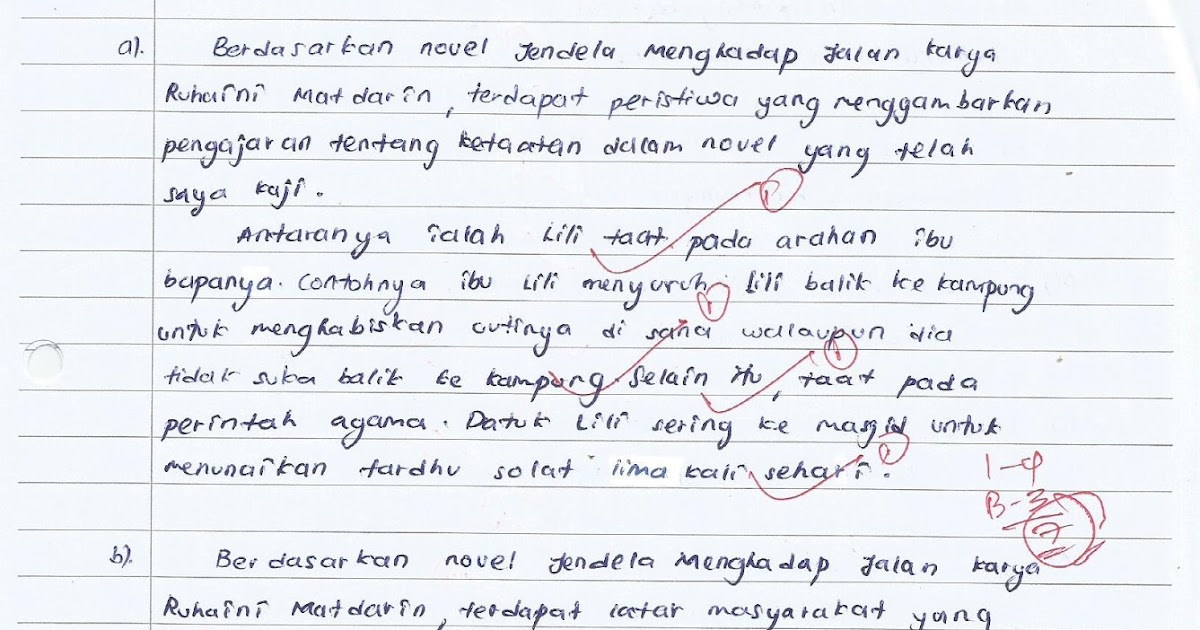 a). Berdasarkan novel Jendela Menghadap Jalan karya
Ruhaini Matdarin, terdapat peristiwa yang menggambarkan
pengajaran tentang ketaatan dalam novel yang telah
saya kaji.
Antaranya ialah Lili taat pada arahan ibu
bapanya. Contohnya ibu Lili menyuruh Lili balik ke kampung
untuk menghabiskan cutinya di sana walaupun dia
tidak suka balik ke kampung. Selain itu, taat pada
perintah agama. Datuk Lili sering ke masjid untuk
menunaikan fardhu solat lima kali sehari.
1-4
B-3
7
b). Berdasarkan novel Jendela Menghadap Jalan karya
Ruhaini Matdarin, terdapat latar masyarakat yang